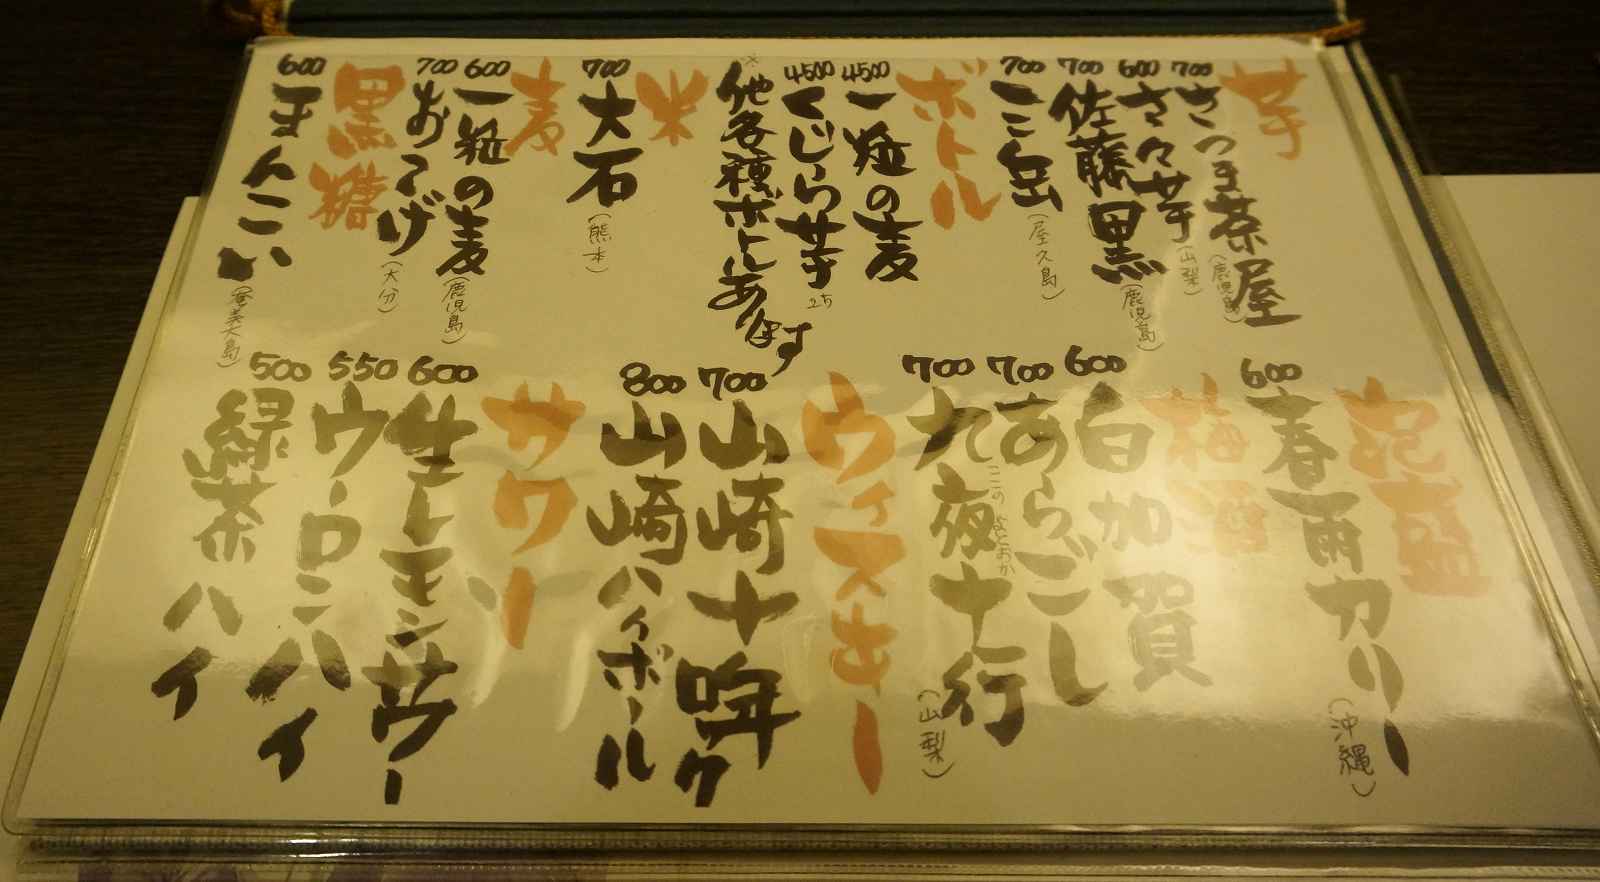 芋
700 さつま茶屋 (鹿児島)
600 さくさ芋 (山梨)
700 佐藤黒 (鹿児島)
700 三岳 (屋久島)
ボトル
4500 一粒の麦
4500 くじら芋 25
※他各種ボトルあります
米
700 大石 (熊本)
麦
600 一粒の麦 (鹿児島)
700 おこげ (大分)
黒糖
600 まんこい (奄美大島)
泡盛
600 春雨カリー (沖縄)
梅酒
600 白加賀
700 あらごし
700 九夜十行 (山梨)
ここのよとおか
ウィスキー
700 山崎十
800 山崎ハイボール
サワー
600 生レモンサワー
550 ウーロンハイ
500 緑茶ハイ